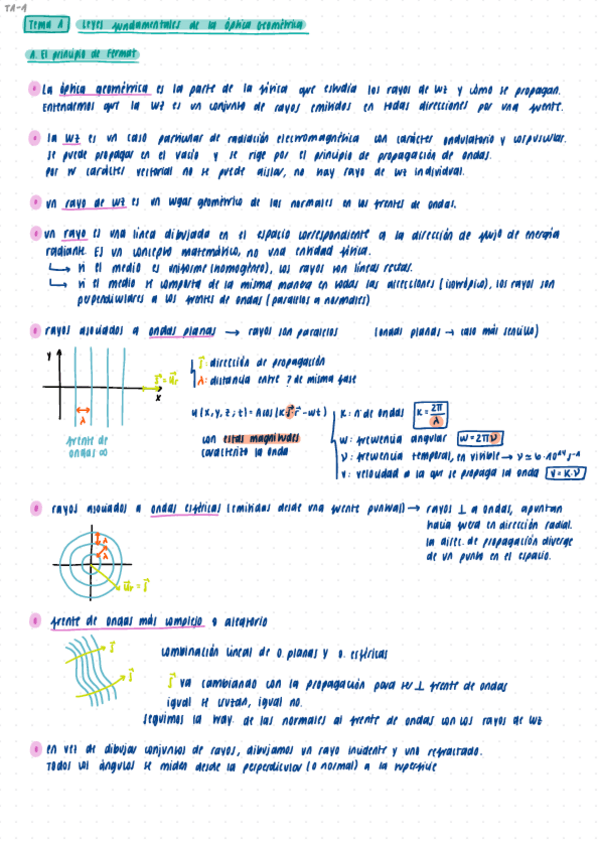 TA-1
Tema 1 Leyes fundamentales de la óptica geométrica
1. El principio de Fermat
La óptica geométrica es la parte de la física que estudia los rayos de luz y cómo se propagan.
Entendemos que la luz es un conjunto de rayos emitidos en todas direcciones por una fuente.
La luz es un caso particular de radiación electromagnética con carácter ondulatorio y corpuscular.
Se puede propagar en el vacío y se rige por el principio de propagación de ondas.
Por su carácter vectorial no se puede aislar, no hay rayo de luz individual.
Un rayo de luz es un lugar geométrico de las normales en los frentes de ondas.
Un rayo es una línea dibujada en el espacio correspondiente a la dirección de flujo de energía
radiante. Es un concepto matemático, no una entidad física.
↳ si el medio es uniforme (homogéneo), los rayos son líneas rectas.
↳ si el medio se comporta de la misma manera en todas las direcciones (isotrópico), los rayos son
perpendiculares a los frentes de ondas (paralelos a normales)
rayos asociados a ondas planas → rayos son paralelos (ondas planas → caso más sencillo)
y
x
λ
frente de
ondas ∞
: dirección de propagación
λ: distancia entre 2 de misma fase
con estas magnitudes
caracterizo la onda
k: nº de ondas k = 2π/λ
w: frecuencia angular w = 2πν
ν: frecuencia temporal, en visible →
v: velocidad a la que se propaga la onda
rayos asociados a ondas esféricas (emitidas desde una fuente puntual) → rayos ⊥ a ondas, apuntan
hacia fuera en dirección radial.
la direc. de propagación diverge
de un punto en el espacio.
λ
λ
frente de ondas más complejo o aleatorio
combinación lineal de o. planas y o. esféricas
va cambiando con la propagación para ser ⊥ frente de ondas
igual se cruzan, igual no.
Seguimos la tray. de las normales al frente de ondas con los rayos de luz
en vez de dibujar conjuntos de rayos, dibujamos un rayo incidente y uno refractado.
Todos los ángulos se miden desde la perpendicular (o normal) a la superficie